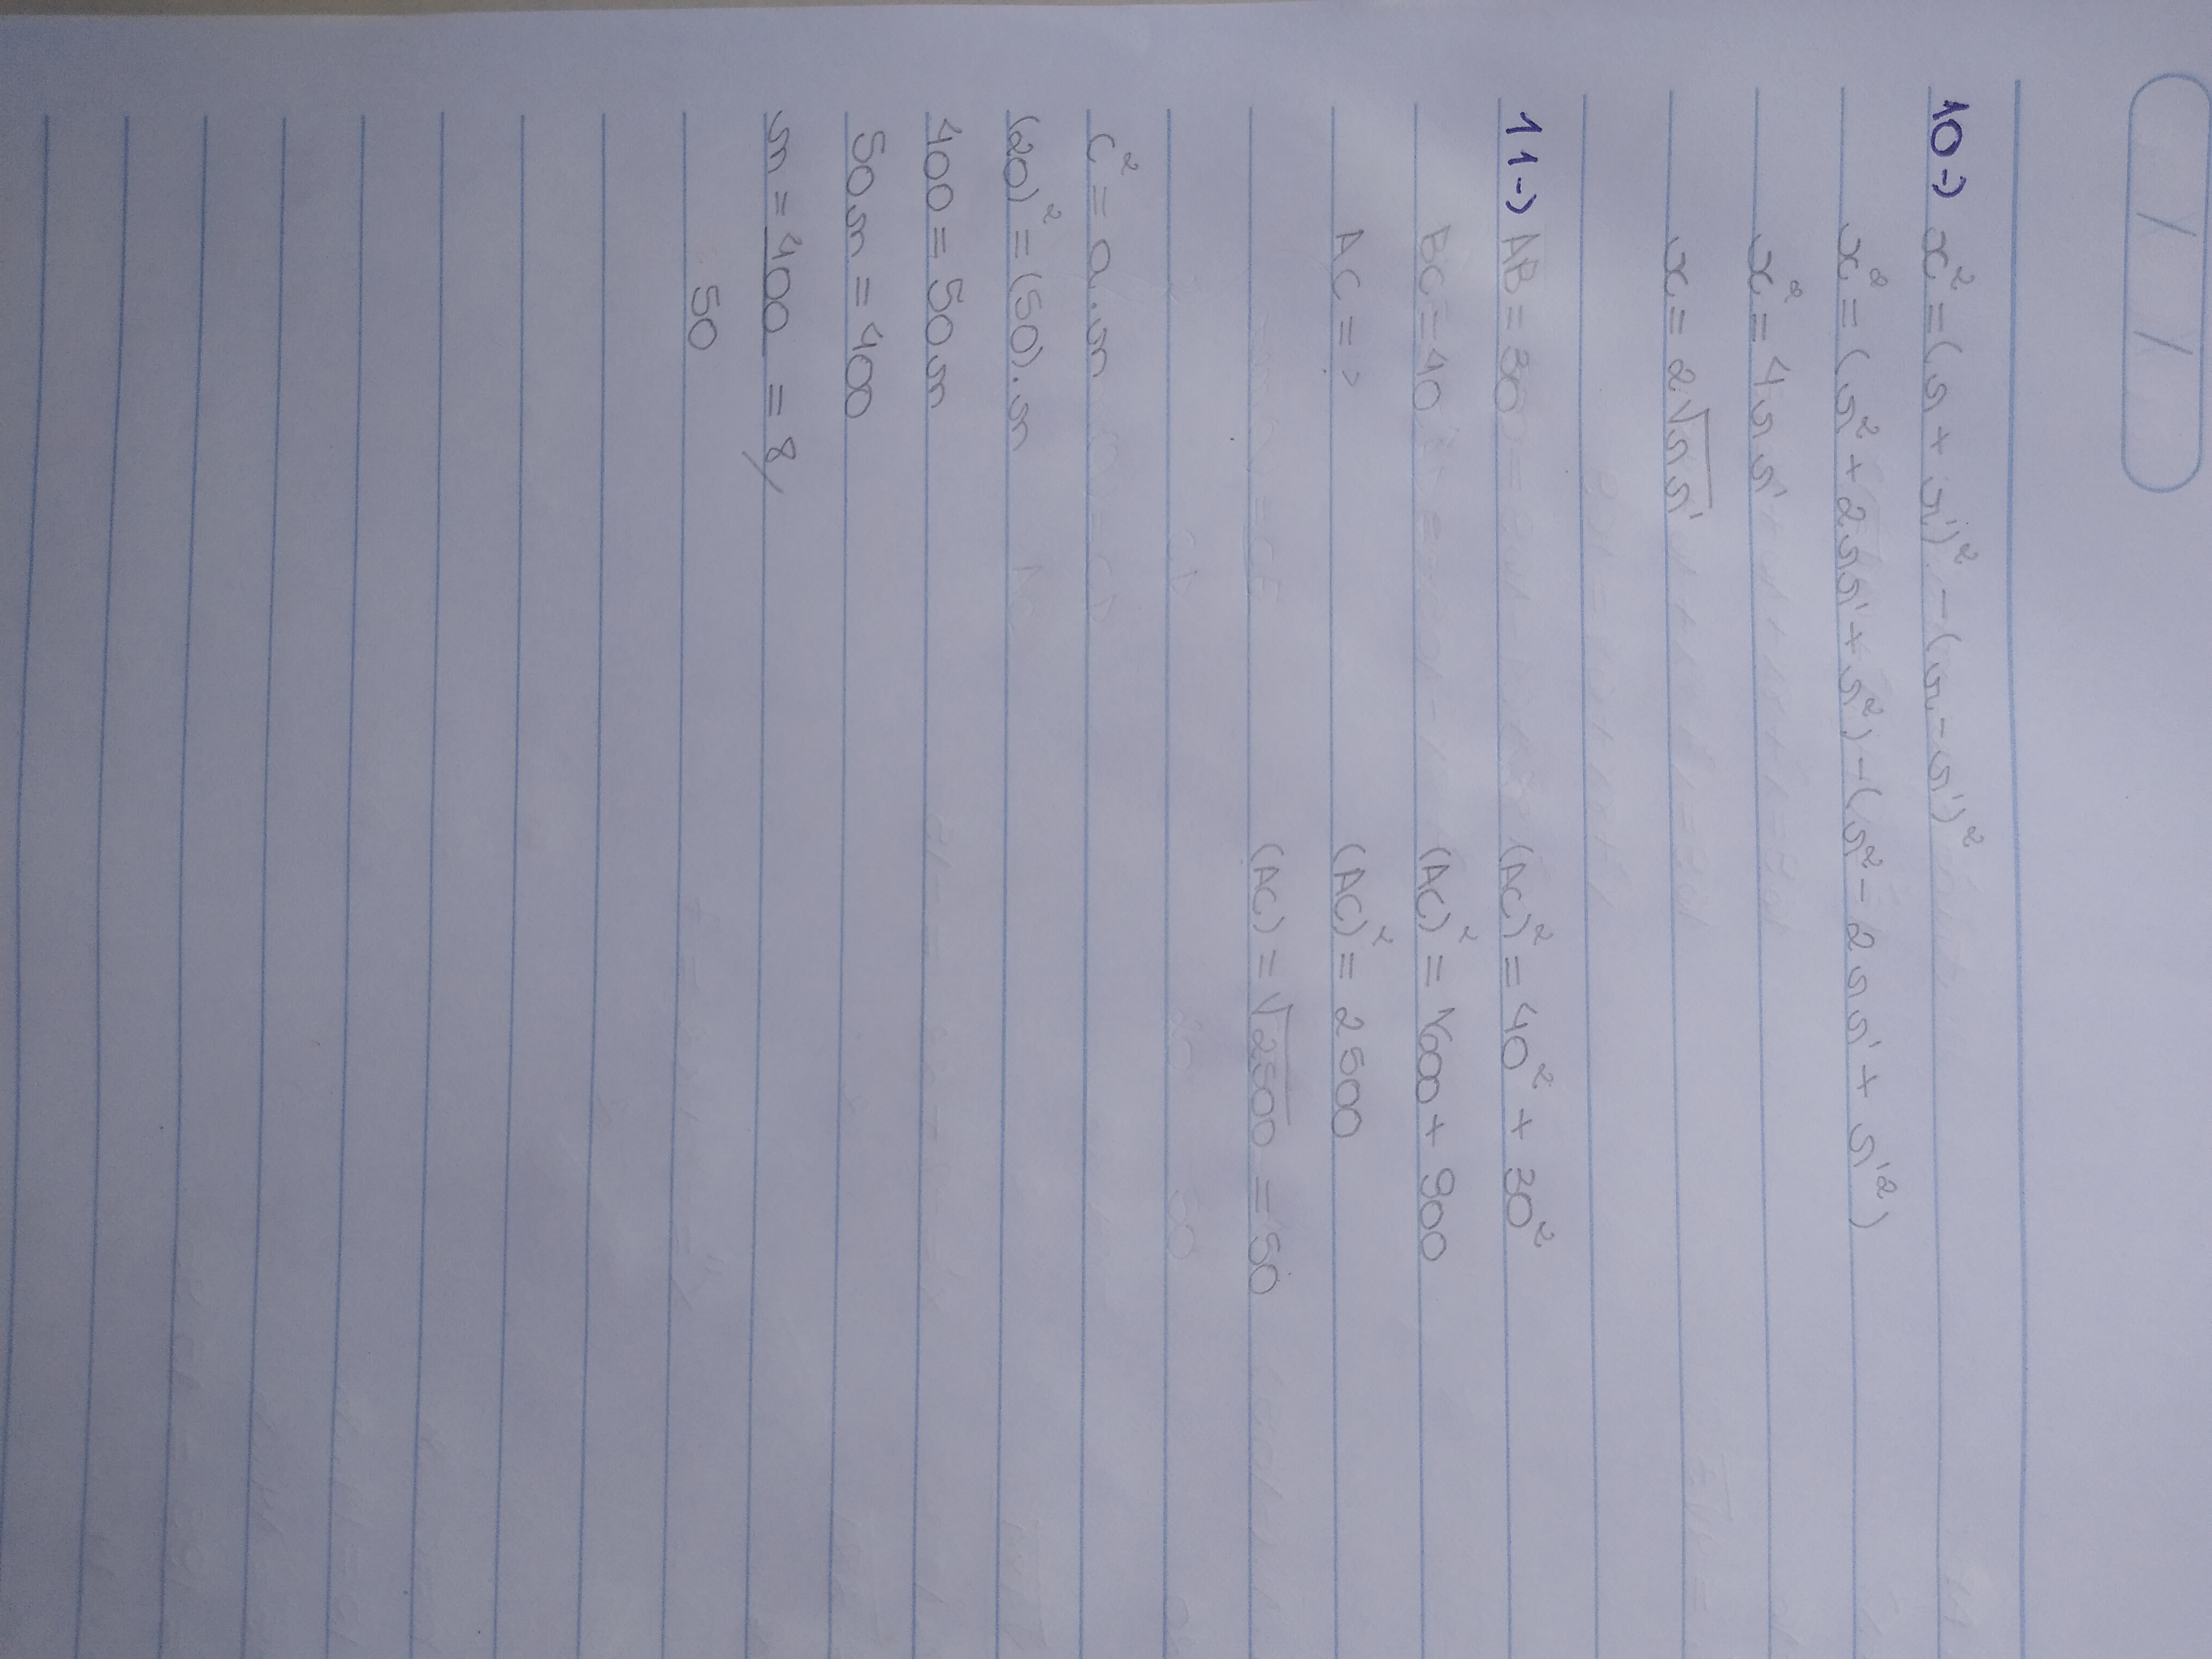 10→ x² = (r + r')² - (r - r')²
x² = (r² + 2rr' + r²) - (r² - 2rr' + r'²)
x² = 4rr'
x = 2√rr'
11→ AB = 30
BC = 40
AC = ?
(AC)² = 40² + 30²
(AC)² = 1600 + 900
(AC)² = 2500
(AC) = √2500 = 50
c² = a . m
(20)² = (50) . m
400 = 50m
50m = 400
m = 400 = 8/
50